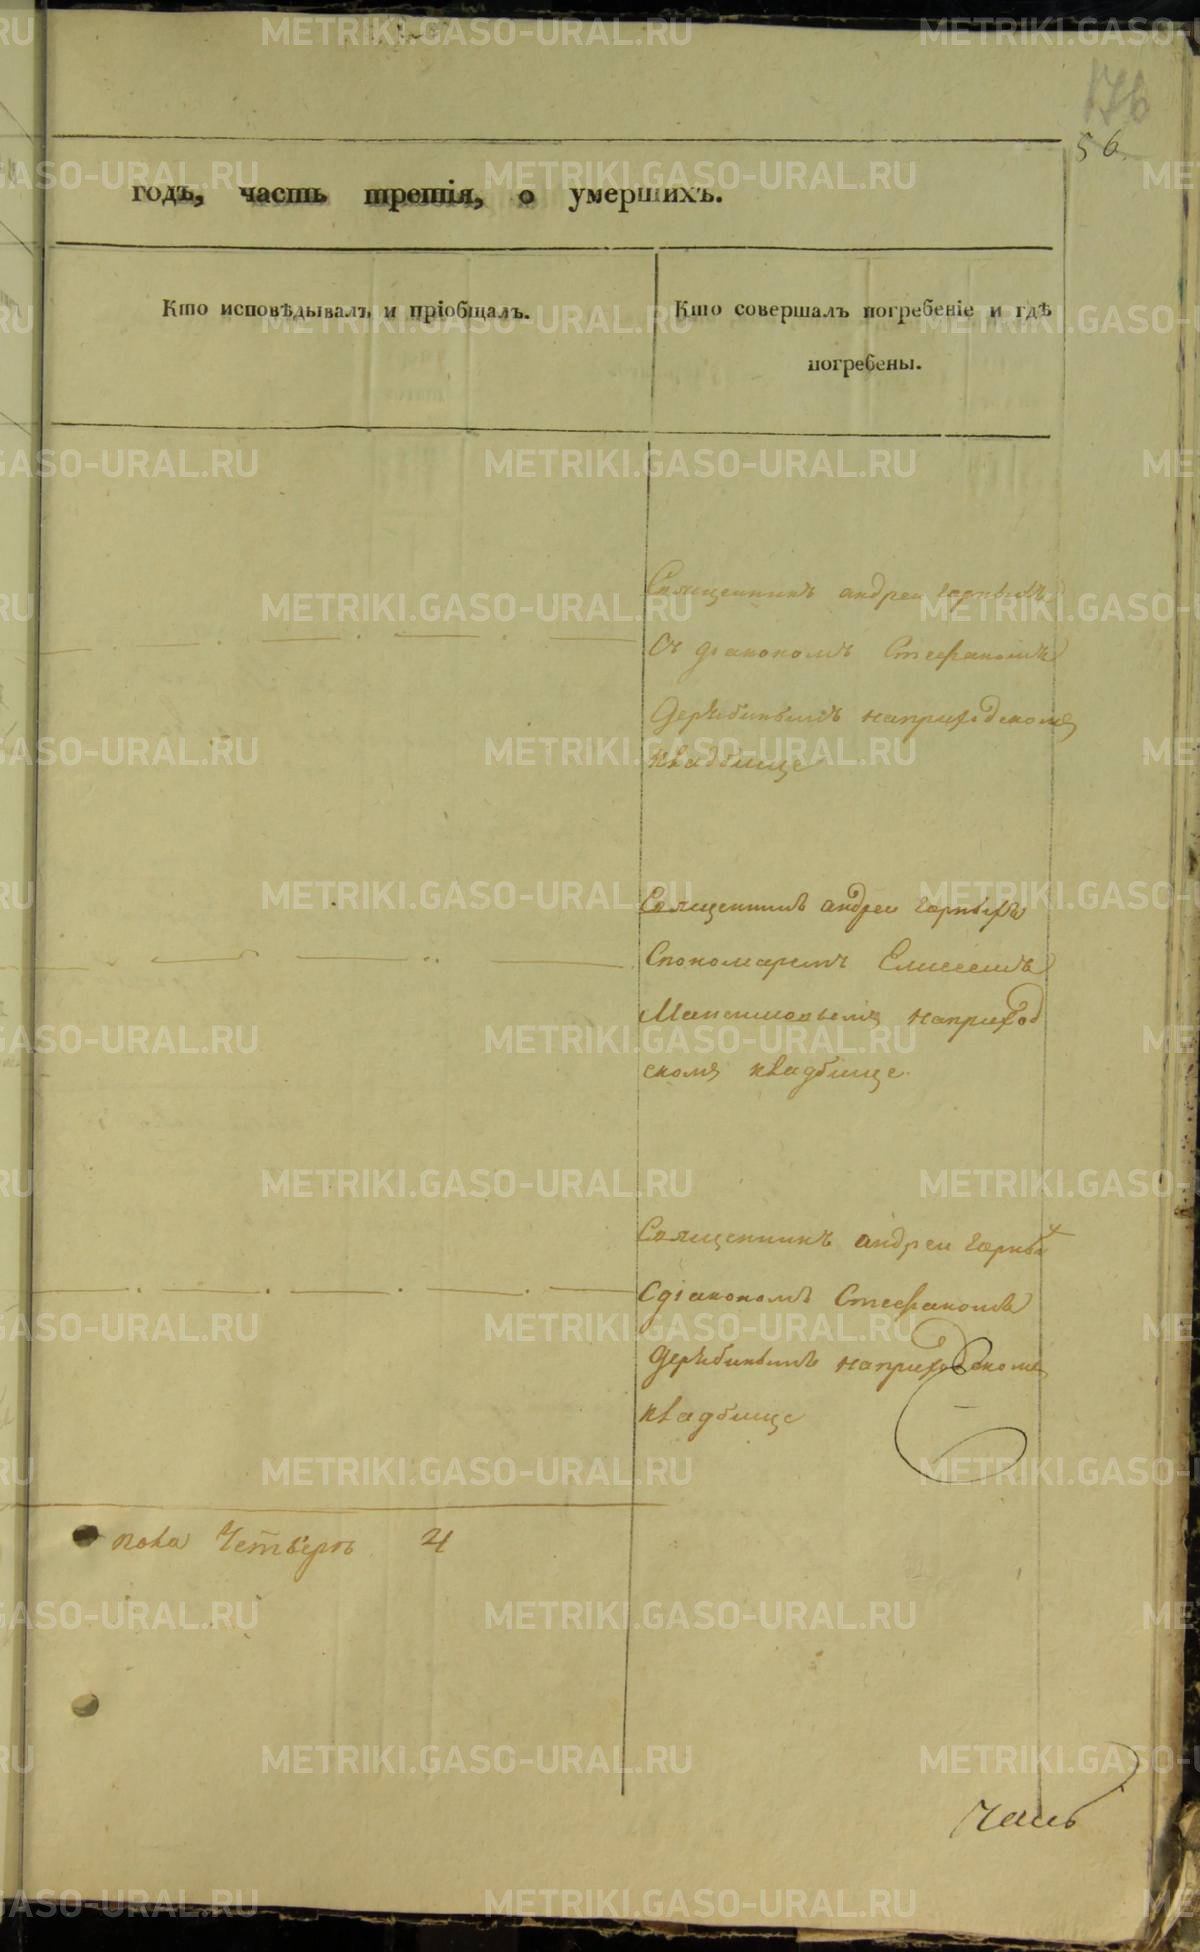 176
56
годъ, часть третія, о умершихъ.
Кто исповѣдывалъ и пріобщалъ.
Кто совершалъ погребеніе и гдѣ
погребены.
Священникъ андреи горныхъ
съ діакономъ Стефаномъ
Дерябинымъ наприходскомъ
кладбище
Священникъ андреи горныхъ
Спономаремъ Елисеемъ
Максимовымъ наприход
скомъ кладбище.
Священникъ андреи горных
Сдіакономъ Стефаномъ
Дерябинымъ наприходскомъ
кладбище
пола Четверо 4
METRIKI.GASO-URAL.RU